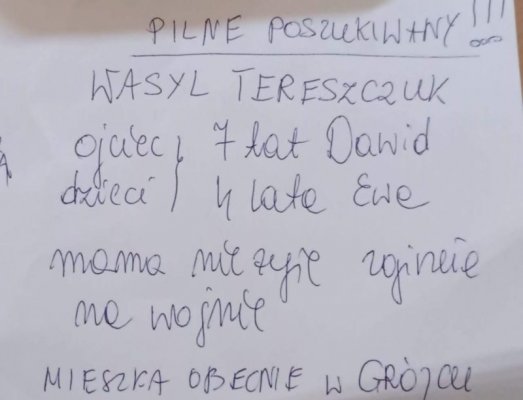 PILNE POSZUKIWANY!!!
WASYL TERESZCZUK
ojciec } 7 lat Dawid
dzieci } 4 lata Ewe
mama nie żyje zginęła
na wojnie
MIESZKA OBECNIE W GRÓJCU